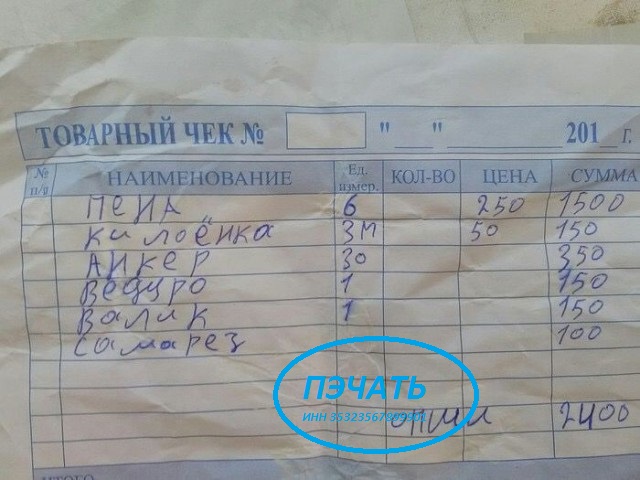 ТОВАРНЫЙ ЧЕК № " " 201 г.
№ п/п НАИМЕНОВАНИЕ Ед. измер. КОЛ-ВО ЦЕНА СУММА
ПЕНА 6 250 1500
килоёнка 3М 50 150
АНКЕР 30 350
Ведуро 1 150
Валик 1 150
Самарез 100
ПЭЧАТЬ
ИНН
2400
ИТОГО